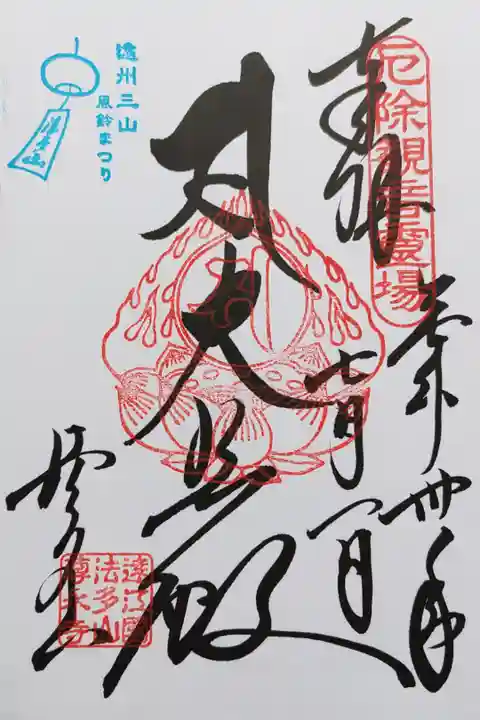 厄除観音霊場
奉拝
平成卅年
七月一日
大悲殿
法多山
遠江國
法多山
尊永寺
遠州三山
風鈴まつり
法多山